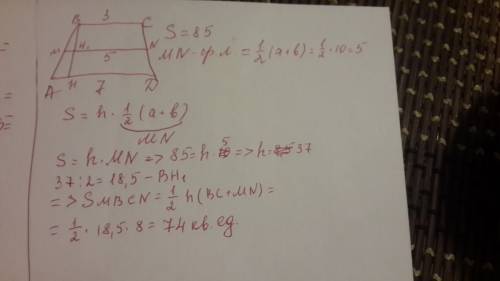 B 3 C
M H₁ N
5
A H 7 D
S = 85
MN - ср.л = 1/2 (a+b) = 1/2 · 10 = 5
S = h · 1/2 (a+b)
MN
S = h · MN => 85 = h · 5 => h = 37
37 : 2 = 18,5 - BH₁
=> S MBCN = 1/2 h (BC + MN) =
= 1/2 · 18,5 · 8 = 74 кв. ед.